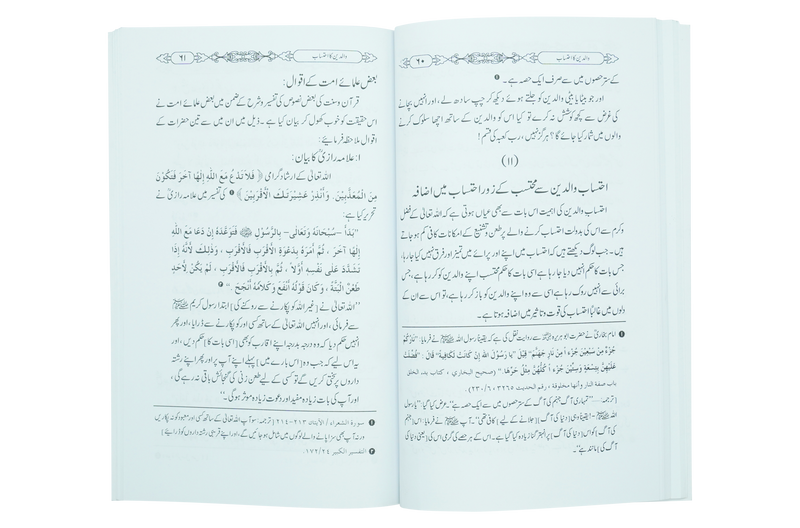 والدین کا احتساب
۶۰
کے ستر حصوں میں سے صرف ایک حصہ ہے۔ ❶
اور جو بیٹا یا بیٹی والدین کو جلتے ہوئے دیکھ کر چپ سادھ لے، اور انہیں بچانے
کی غرض سے کچھ کوشش نہ کرے تو کیا اس کو والدین کے ساتھ اچھا سلوک کرنے
والوں میں شمار کیا جائے گا؟ ہرگز نہیں، رب کعبہ کی قسم!
(۱۱)
احتساب والدین سے محتسب کے زور احتساب میں اضافہ
احتساب والدین کی اہمیت اس بات سے بھی عیاں ہوتی ہے کہ اللہ تعالیٰ کے فضل
وکرم سے اس کی بدولت احتساب کرنے والے پر طعن و تشنیع کے امکانات کافی کم ہو جاتے
ہیں۔ جب لوگ دیکھتے ہیں کہ احتساب میں اپنے اور پرائے میں تمیز اور فرق نہیں کیا جا رہا،
جس بات کا حکم انہیں دیا جا رہا ہے اسی بات کا حکم محتسب اپنے والدین کو کر رہا ہے، جس
برائی سے انہیں روک رہا ہے اسی سے وہ اپنے والدین کو باز کر رہا ہے، تو اس سے ان کے
دلوں میں غالباً احتساب کی قوت و تاثیر میں اضافہ ہوتا ہے۔
❶ امام بخاریؒ نے حضرت ابو ہریرہ سے روایت نقل کی ہے کہ یقیناً رسول اللہ ﷺ نے فرمایا: ”نَارُكُمْ
جُزْءٌ مِنْ سَبْعِينَ جُزْءًا مِنْ نَارِ جَهَنَّمَ“ قِيلَ: ”يَا رَسُولَ اللهِ إِنْ كَانَتْ لَكَافِيَةً“ قَالَ: ”فُضِّلَتْ
عَلَيْهِنَّ بِتِسْعَةٍ وَسِتِّينَ جُزْءًا كُلُّهُنَّ مِثْلُ حَرِّهَا“ (صحیح البخاري، كتاب بدء الخلق
باب صفة النار وأنها مخلوقة، رقم الحديث ۳۲٦٥، ٦/۲۳۰).
[ترجمہ:.....”تمہاری آگ جہنم کی آگ کے ستر حصوں میں سے ایک حصہ ہے“۔ عرض کیا گیا: ”یا رسول
اللہ ﷺ- یقیناً وہی (دنیا کی آگ) [جلانے کے لیے] کافی تھی“۔ آپ ﷺ نے فرمایا: اس (جہنم
کی آگ) کو اس (دنیا کی آگ) پر انہتر گنا زیادہ کیا گیا ہے۔ اس کے ہر حصے کی گرمی اس کی (یعنی دنیا کی
آگ کی) مانند ہے“۔
والدین کا احتساب
۶۱
بعض علمائے امت کے اقوال:
قرآن و سنت کی بعض نصوص کی تفسیر و شرح کے ضمن میں بعض علمائے امت نے
اس حقیقت کو خوب کھول کر بیان کیا ہے۔ ذیل میں ان میں سے تین حضرات کے
اقوال ملاحظہ فرمائیے:
۱: علامہ رازیؒ کا بیان:
اللہ تعالیٰ کے ارشاد گرامی ﴿فَلاَ تَدْعُ مَعَ اللهِ إِلٰهًا آخَرَ فَتَكُوْنَ
مِنَ الْمُعَذَّبِيْنَ. وَأَنْذِرْ عَشِيْرَتَكَ الْأَقْرَبِيْنَ﴾ ❶ کی تفسیر میں علامہ رازیؒ نے
تحریر کیا ہے:
”بَدَأَ -سُبْحَانَهُ وَتَعَالَى- بِالرَّسُوْلِ ﷺ فَتَوَعَّدَهُ إِنْ دَعَا مَعَ اللهِ
إِلٰهًا آخَرَ، ثُمَّ أَمَرَهُ بِدَعْوَةِ الْأَقْرَبِ فَالْأَقْرَبِ، وَذٰلِكَ لِأَنَّهُ إِذَا
تَشَدَّدَ عَلٰى نَفْسِهِ أَوَّلاً، ثُمَّ بِالْأَقْرَبِ فَالْأَقْرَبِ، لَمْ يَكُنْ لِأَحَدٍ
طَعْنٌ الْبَتَّةَ، وَكَانَ قَوْلُهُ أَنْفَعَ وَكَلاَمُهُ أَنْجَحَ“. ❷
”اللہ تعالیٰ نے [غیر اللہ کو پکارنے سے روکنے کی] ابتدا رسول کریم ﷺ
سے فرمائی، اور انہیں اللہ تعالیٰ کے ساتھ کسی اور کو پکارنے سے ڈرایا، اور پھر
انہیں حکم دیا کہ وہ درجہ بدرجہ اپنے اقارب کو بھی [اسی بات کا] حکم دیں، اور
یہ اس لیے کہ جب وہ [اس بارے میں] پہلے اپنے آپ پر اور پھر اپنے رشتہ
داروں پر سختی کریں گے تو کسی کے لیے طعن زنی کی گنجائش باقی نہ رہے گی،
اور آپ کی بات زیادہ مفید اور دعوت زیادہ موثر ہوگی“۔
❶ سورۃ الشعراء / الآیتان ۲۱۳-۲۱٤ [ترجمہ: سو آپ اللہ تعالیٰ کے ساتھ کسی اور معبود کو نہ پکاریں
ورنہ آپ بھی سزا پانے والے لوگوں میں شامل ہو جائیں گے، اور اپنے قریبی رشتہ داروں کو ڈرایئے]
❷ التفسير الكبير ٢٤/۱۷۲.